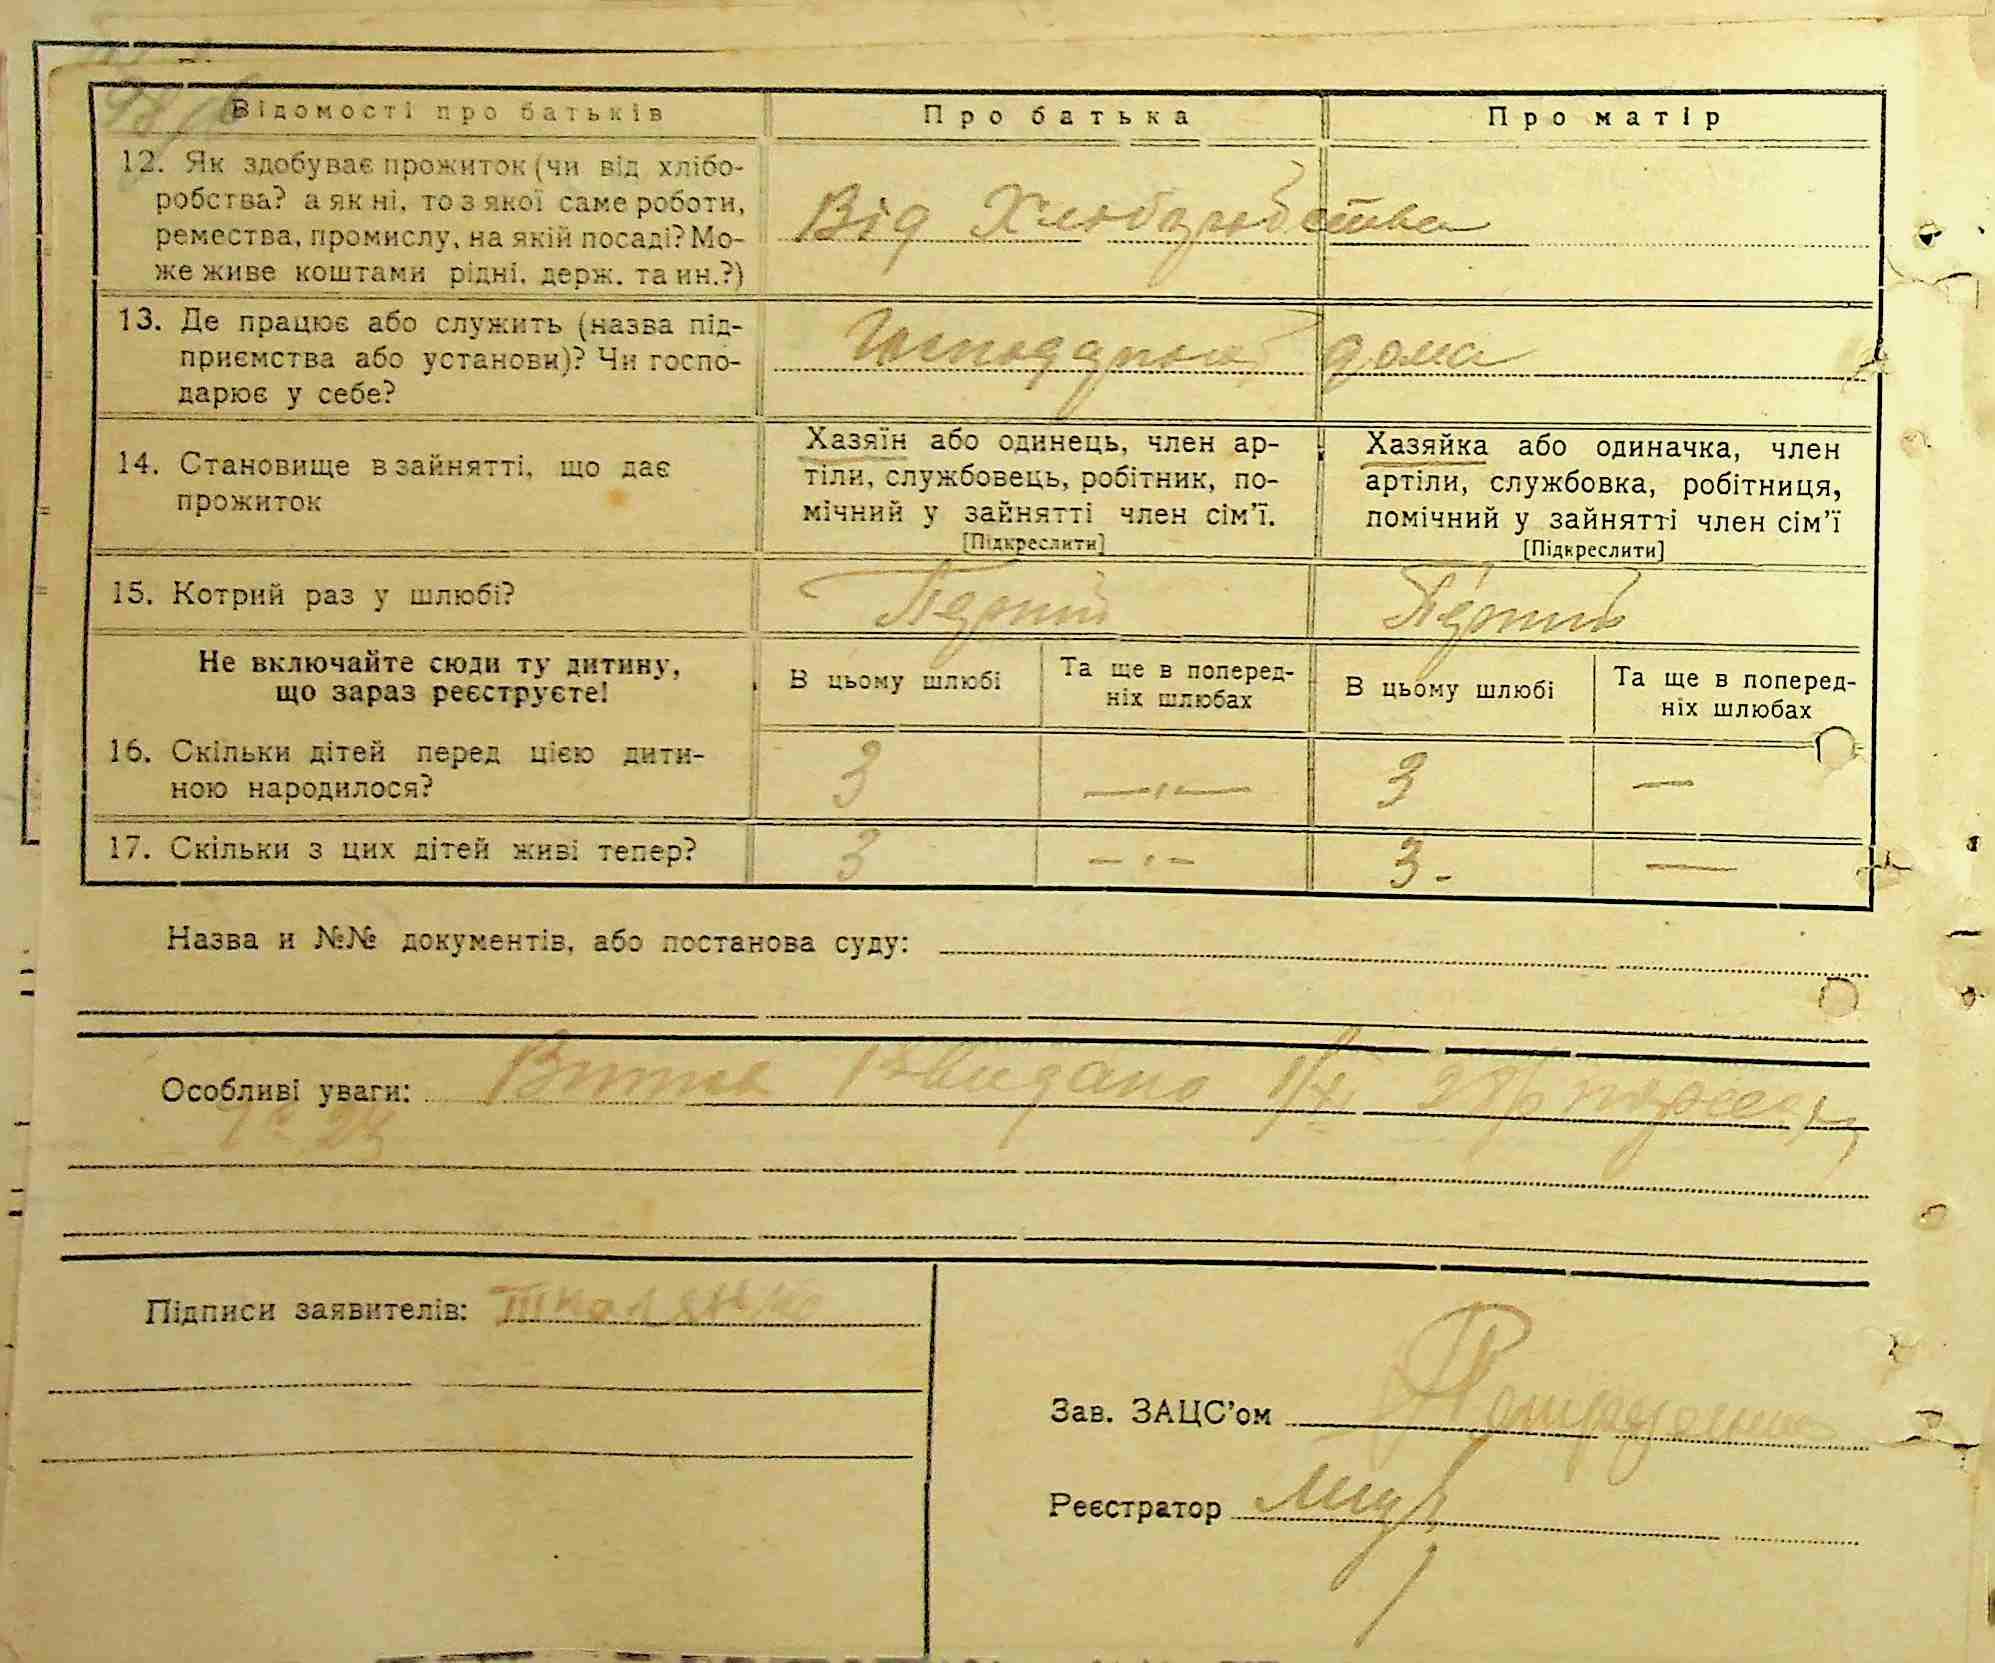 Відомості про батьків Про батька Про матір
12. Як здобуває прожиток (чи від хлібо-
робства? а як ні, то з якої саме роботи,
ремества, промислу, на якій посаді? Мо-
же живе коштами рідні, держ. та ин.?)
Від Хлиборобства
13. Де працює або служить (назва під-
приємства або установи)? Чи госпо-
дарює у себе?
дома
14. Становище в зайнятті, що дає
прожиток
Хазяїн або одинець, член ар-
тіли, службовець, робітник, по-
мічний у зайнятті член сім’ї.
[Підкреслити]
Хазяйка або одиначка, член
артіли, службовка, робітниця,
помічний у зайнятті член сім’ї
[Підкреслити]
15. Котрий раз у шлюбі?
Не включайте сюди ту дитину,
що зараз реєструєте!
В цьому шлюбі
Та ще в поперед-
ніх шлюбах
В цьому шлюбі
Та ще в поперед-
ніх шлюбах
16. Скільки дітей перед цією дити-
ною народилося?
3 — 3 —
17. Скільки з цих дітей живі тепер?
3 - 3 - —
Назва и №№ документів, або постанова суду:
Особливі уваги:
Підписи заявителів:
Зав. ЗАЦС’ом
Реєстратор